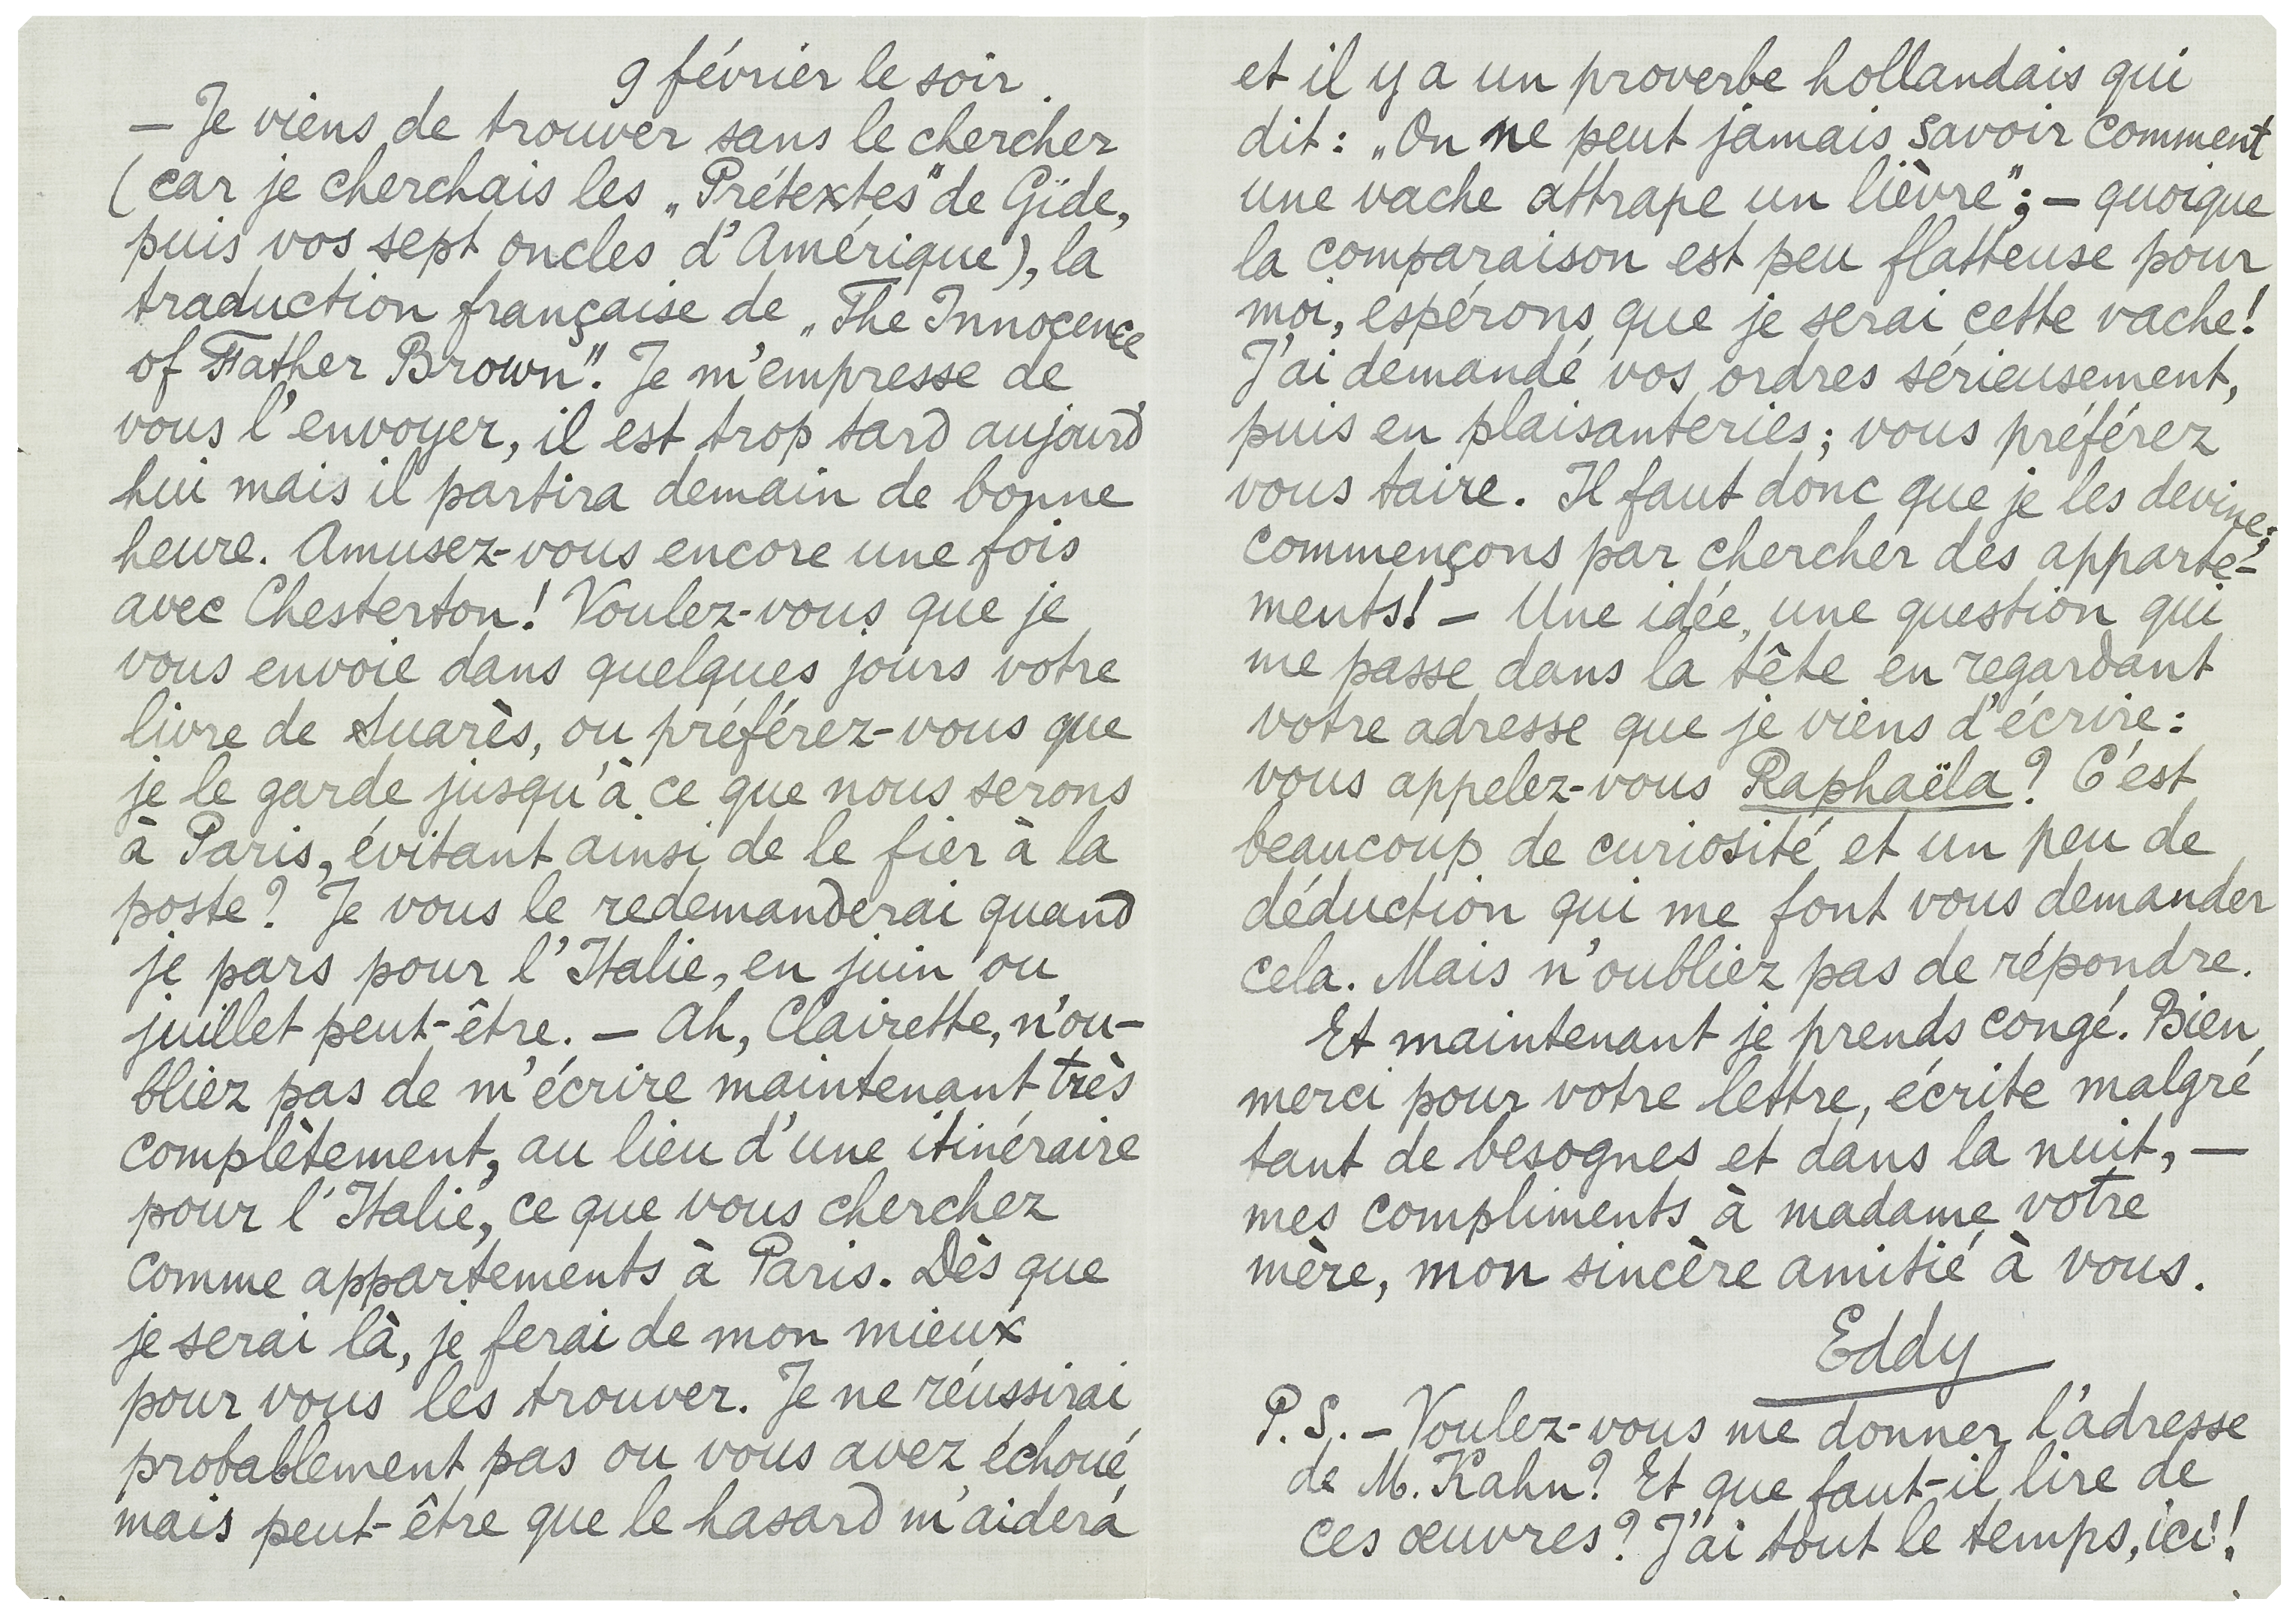 9 février le soir.
— Je viens de trouver sans le chercher
(car je cherchais les „Prétextes" de Gide,
puis vos sept oncles d'Amérique), la
traduction française de „The Innocence
of Father Brown". Je m'empresse de
vous l'envoyer, il est trop tard aujourd'
hui mais il partira demain de bonne
heure. Amusez-vous encore une fois
avec Chesterton! Voulez-vous que je
vous envoie dans quelques jours votre
livre de Suarès, ou préférez-vous que
je le garde jusqu'à ce que nous serons
à Paris, évitant ainsi de le fier à la
poste? Je vous le redemanderai quand
je pars pour l'Italie, en juin ou
juillet peut-être. — Ah, Clairette, n'ou-
bliez pas de m'écrire maintenant très
complètement, au lieu d'une itinéraire
pour l'Italie, ce que vous cherchez
comme appartements à Paris. Dès que
je serai là, je ferai de mon mieux
pour vous les trouver. Je ne réussirai
probablement pas ou vous avez échoué,
mais peut-être que le hasard m'aidera
et il y a un proverbe hollandais qui
dit: „On ne peut jamais savoir comment
une vache attrape un lièvre"; — quoique
la comparaison est peu flatteuse pour
moi, espérons que je serai cette vache!
J'ai demandé vos ordres sérieusement,
puis en plaisanteries; vous préférez
vous taire. Il faut donc que je les devine;
commençons par chercher des apparte-
ments! — Une idée, une question qui
me passe dans la tête en regardant
votre adresse que je viens d'écrire:
vous appelez-vous Raphaëla? C'est
beaucoup de curiosité et un peu de
déduction qui me font vous demander
cela. Mais n'oubliez pas de répondre.
Et maintenant je prends congé. Bien
merci pour votre lettre, écrite malgré
tant de besognes et dans la nuit, —
mes compliments à madame votre
mère, mon sincère amitié à vous.
Eddy
P.S. — Voulez-vous me donner l'adresse
de M. Kahn? Et que faut-il lire de
ces œuvres? J'ai tout le temps, ici!